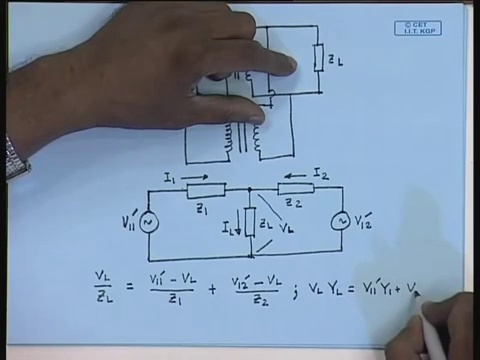 © CET
I.I.T. KGP
Z_L
I_1
I_2
Z_1
Z_2
V_11' 
I_L
Z_L
V_L
V_12'
V_L/Z_L = (V_11' - V_L)/Z_1 + (V_12' - V_L)/Z_2 ; V_L Y_L = V_11' Y_1 + V